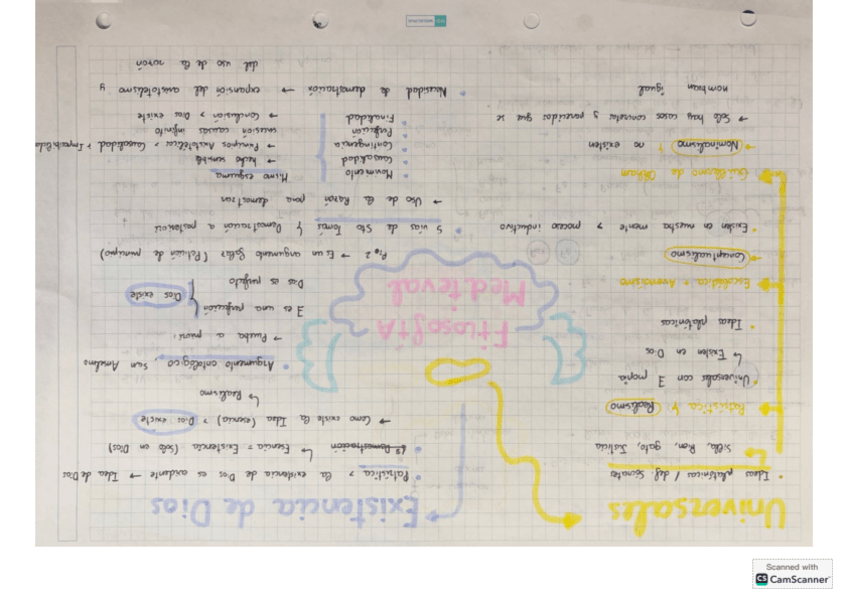 Filosofía
Medieval
Universales
• Ideas platónicas / def Sócrates
Silla, Ron, gato, Justicia
→ Patrística ↳ Realismo
• Universales con ∃ propia
↳ Existen en Dios
• Ideas platónicas
→ Escolástica + Avanadisimo
Conceptualismo
• Existen en nuestra mente > proceso inductivo
→ Guillermo de Okham
→ Nominalismo ↳ no existen
→ Solo hay casos concretos y parecidos que se
nombran igual
Existencia de Dios
• Patrística > la existencia de Dios es evidente → Idea de Dios
↳ Esencia = Existencia (solo en Dios)
→ Como existe la Idea (esencia) > Dios existe
↳ Realismo
• Argumento ontológico, San Anselmo
→ Prueba a priori
∃ es una perfección
Dios es perfecto
Dios existe
→ Es un argumento (Petición de principio)
• 5 vías de Sto Tomás ↳ Demostración a posteriori
→ Uso de la Razón para demostrar
• Movimiento
• Causalidad
• Contingencia
• Perfección
• Finalidad
Mismo esquema
→ hecho sensible
→ Principios Aristotélicos > Causalidad
sucesión causas infinito
→ Conclusión > Dios existe
• Necesidad de demostración → expansión del aristotelismo y
del uso de la razón
Scanned with
CS CamScanner